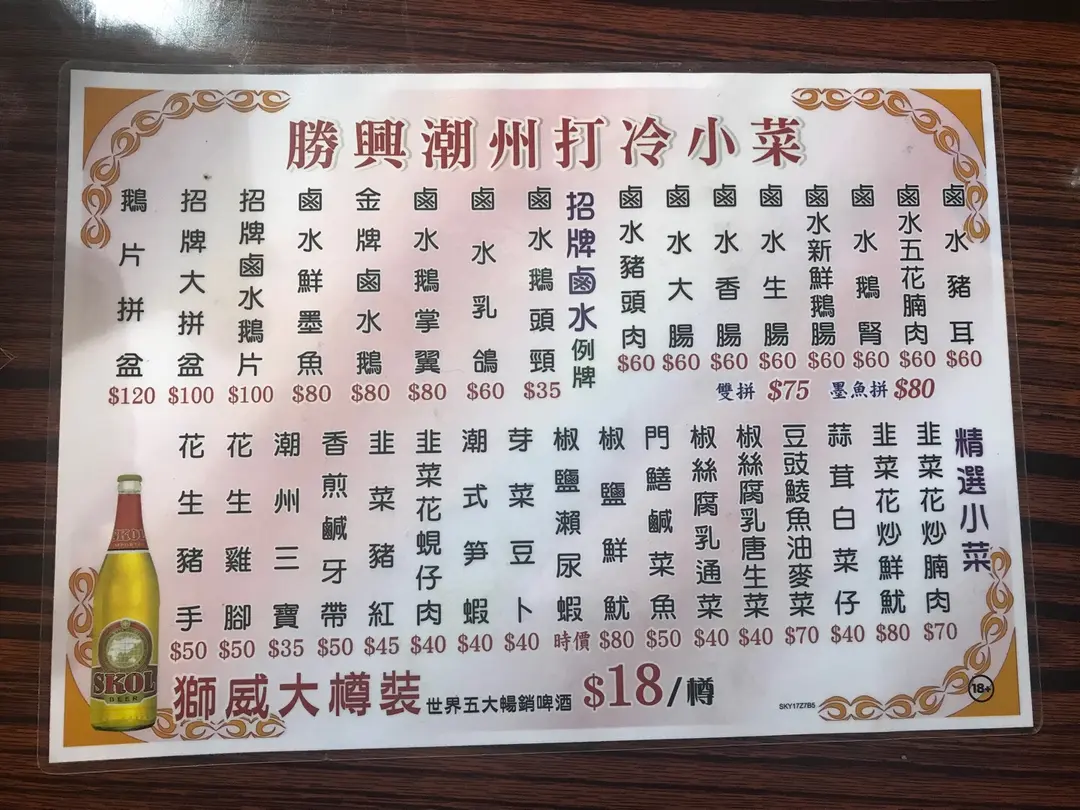 勝興潮州打冷小菜
鹵水豬耳 $60
鹵水五花腩肉 $60
鹵水鵝腎 $60
鹵水新鮮鵝腸 $60
鹵水生腸 $60
鹵水香腸 $60
鹵水大腸 $60
鹵水豬頭肉 $60
雙拼 $75 墨魚拼 $80
招牌鹵水例牌
鹵水鵝頭頸 $35
鹵水乳鴿 $60
鹵水鵝掌翼 $80
金牌鹵水鵝 $80
鹵水鮮墨魚 $80
招牌鹵水鵝片 $100
招牌大拼盆 $100
鵝片拼盆 $120
精選小菜
韭菜花炒腩肉 $70
韭菜花炒鮮魷 $80
蒜茸白菜仔 $40
豆豉鯪魚油麥菜 $70
椒絲腐乳唐生菜 $40
椒絲腐乳通菜 $40
門鱔鹹菜魚 $50
椒鹽鮮魷 $80
椒鹽瀨尿蝦 時價
芽菜豆卜 $40
潮式笋蝦 $40
韭菜花蜆仔肉 $40
韭菜豬紅 $45
香煎鹹牙帶 $50
潮州三寶 $35
花生雞腳 $50
花生豬手 $50
SKOL
SKOL
BEER
獅威大樽裝 世界五大暢銷啤酒 $18/樽
SKY17Z7B5
18+